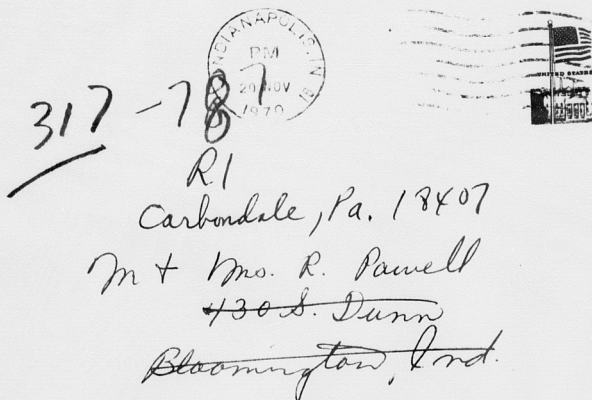 INDIANAPOLIS, IN
PM
20 NOV
1970
UNITED STATES
317-787
R1
Carbondale, Pa. 18407
M + Mrs. R. Powell
430 S. Dunn
Bloomington, Ind.